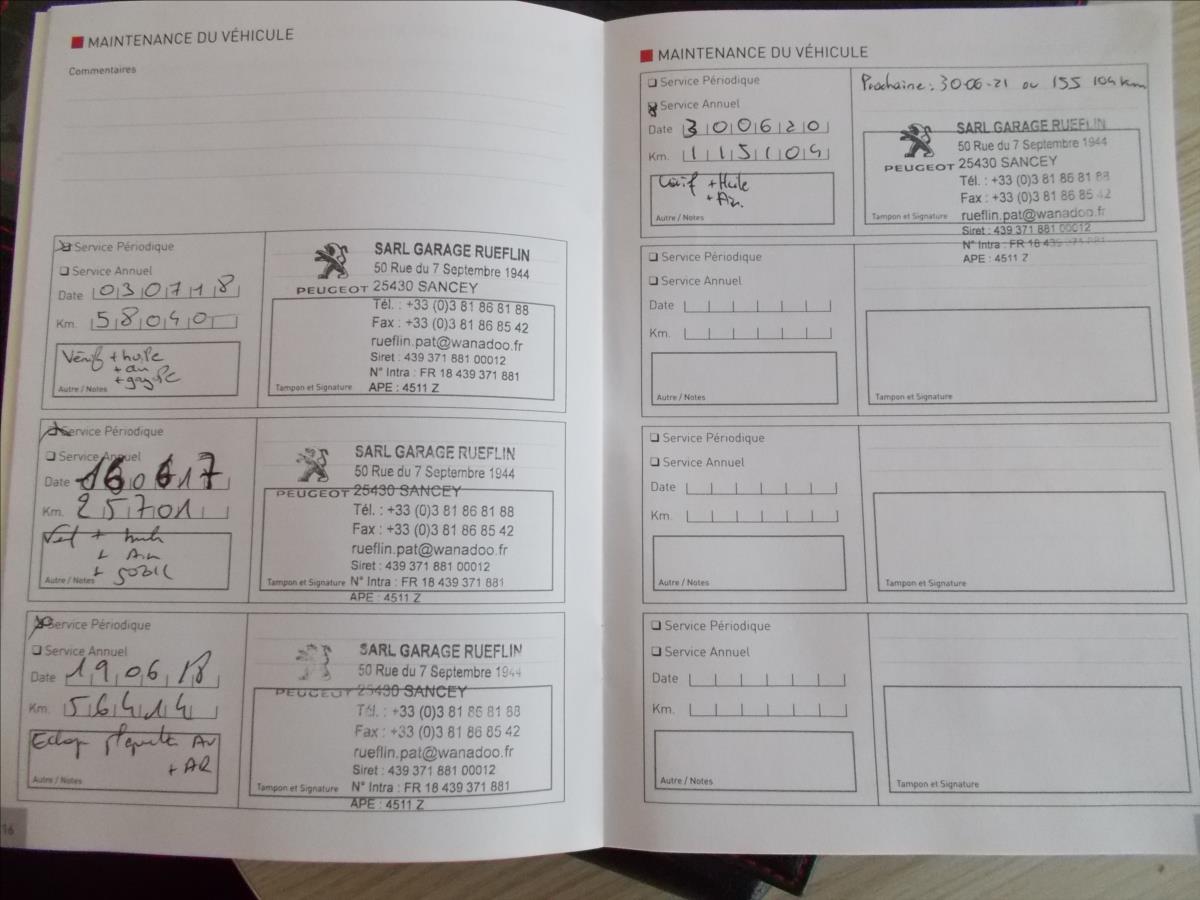 MAINTENANCE DU VÉHICULE
Commentaires
Service Périodique
Service Annuel
Date 030718
Km. 58040
Vérif + huile
+ air
+ gazole
Autre / Notes
PEUGEOT
SARL GARAGE RUEFLIN
50 Rue du 7 Septembre 1944
25430 SANCEY
Tél. : +33 (0)3 81 86 81 88
Fax : +33 (0)3 81 86 85 42
rueflin.pat@wanadoo.fr
Siret : 439 371 881 00012
N° Intra : FR 18 439 371 881
APE : 4511 Z
Tampon et Signature
Service Périodique
Service Annuel
Date 160617
Km. 25701
+ huile
+ Air
Autre / Notes
PEUGEOT
SARL GARAGE RUEFLIN
50 Rue du 7 Septembre 1944
25430 SANCEY
Tél. : +33 (0)3 81 86 81 88
Fax : +33 (0)3 81 86 85 42
rueflin.pat@wanadoo.fr
Siret : 439 371 881 00012
N° Intra : FR 18 439 371 881
APE : 4511 Z
Tampon et Signature
Service Périodique
Service Annuel
Date 190618
Km. 56414
plaquette AV
+ AR
Autre / Notes
PEUGEOT
SARL GARAGE RUEFLIN
50 Rue du 7 Septembre 1944
25430 SANCEY
Tél. : +33 (0)3 81 86 81 88
Fax : +33 (0)3 81 86 85 42
rueflin.pat@wanadoo.fr
Siret : 439 371 881 00012
N° Intra : FR 18 439 371 881
APE : 4511 Z
Tampon et Signature
16
MAINTENANCE DU VÉHICULE
Service Périodique
Service Annuel
Date 300620
Km. 115104
Vérif + Huile
+ Air.
Autre / Notes
Prochaine : 30-06-21 ou 155 104 km
PEUGEOT
SARL GARAGE RUEFLIN
50 Rue du 7 Septembre 1944
25430 SANCEY
Tél. : +33 (0)3 81 86 81 88
Fax : +33 (0)3 81 86 85 42
rueflin.pat@wanadoo.fr
Siret : 439 371 881 00012
N° Intra : FR 18 439 371 881
APE : 4511 Z
Tampon et Signature
Service Périodique
Service Annuel
Date
Km.
Autre / Notes
Tampon et Signature
Service Périodique
Service Annuel
Date
Km.
Autre / Notes
Tampon et Signature
Service Périodique
Service Annuel
Date
Km.
Autre / Notes
Tampon et Signature